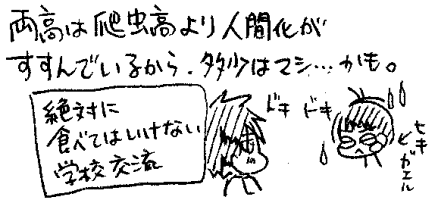 両高は爬虫高より人間化が
すすんでいるから、多少はマシ…かも。
絶対に
食べてはいけない
学校交流
ドキ ドキ
ヒキガエル